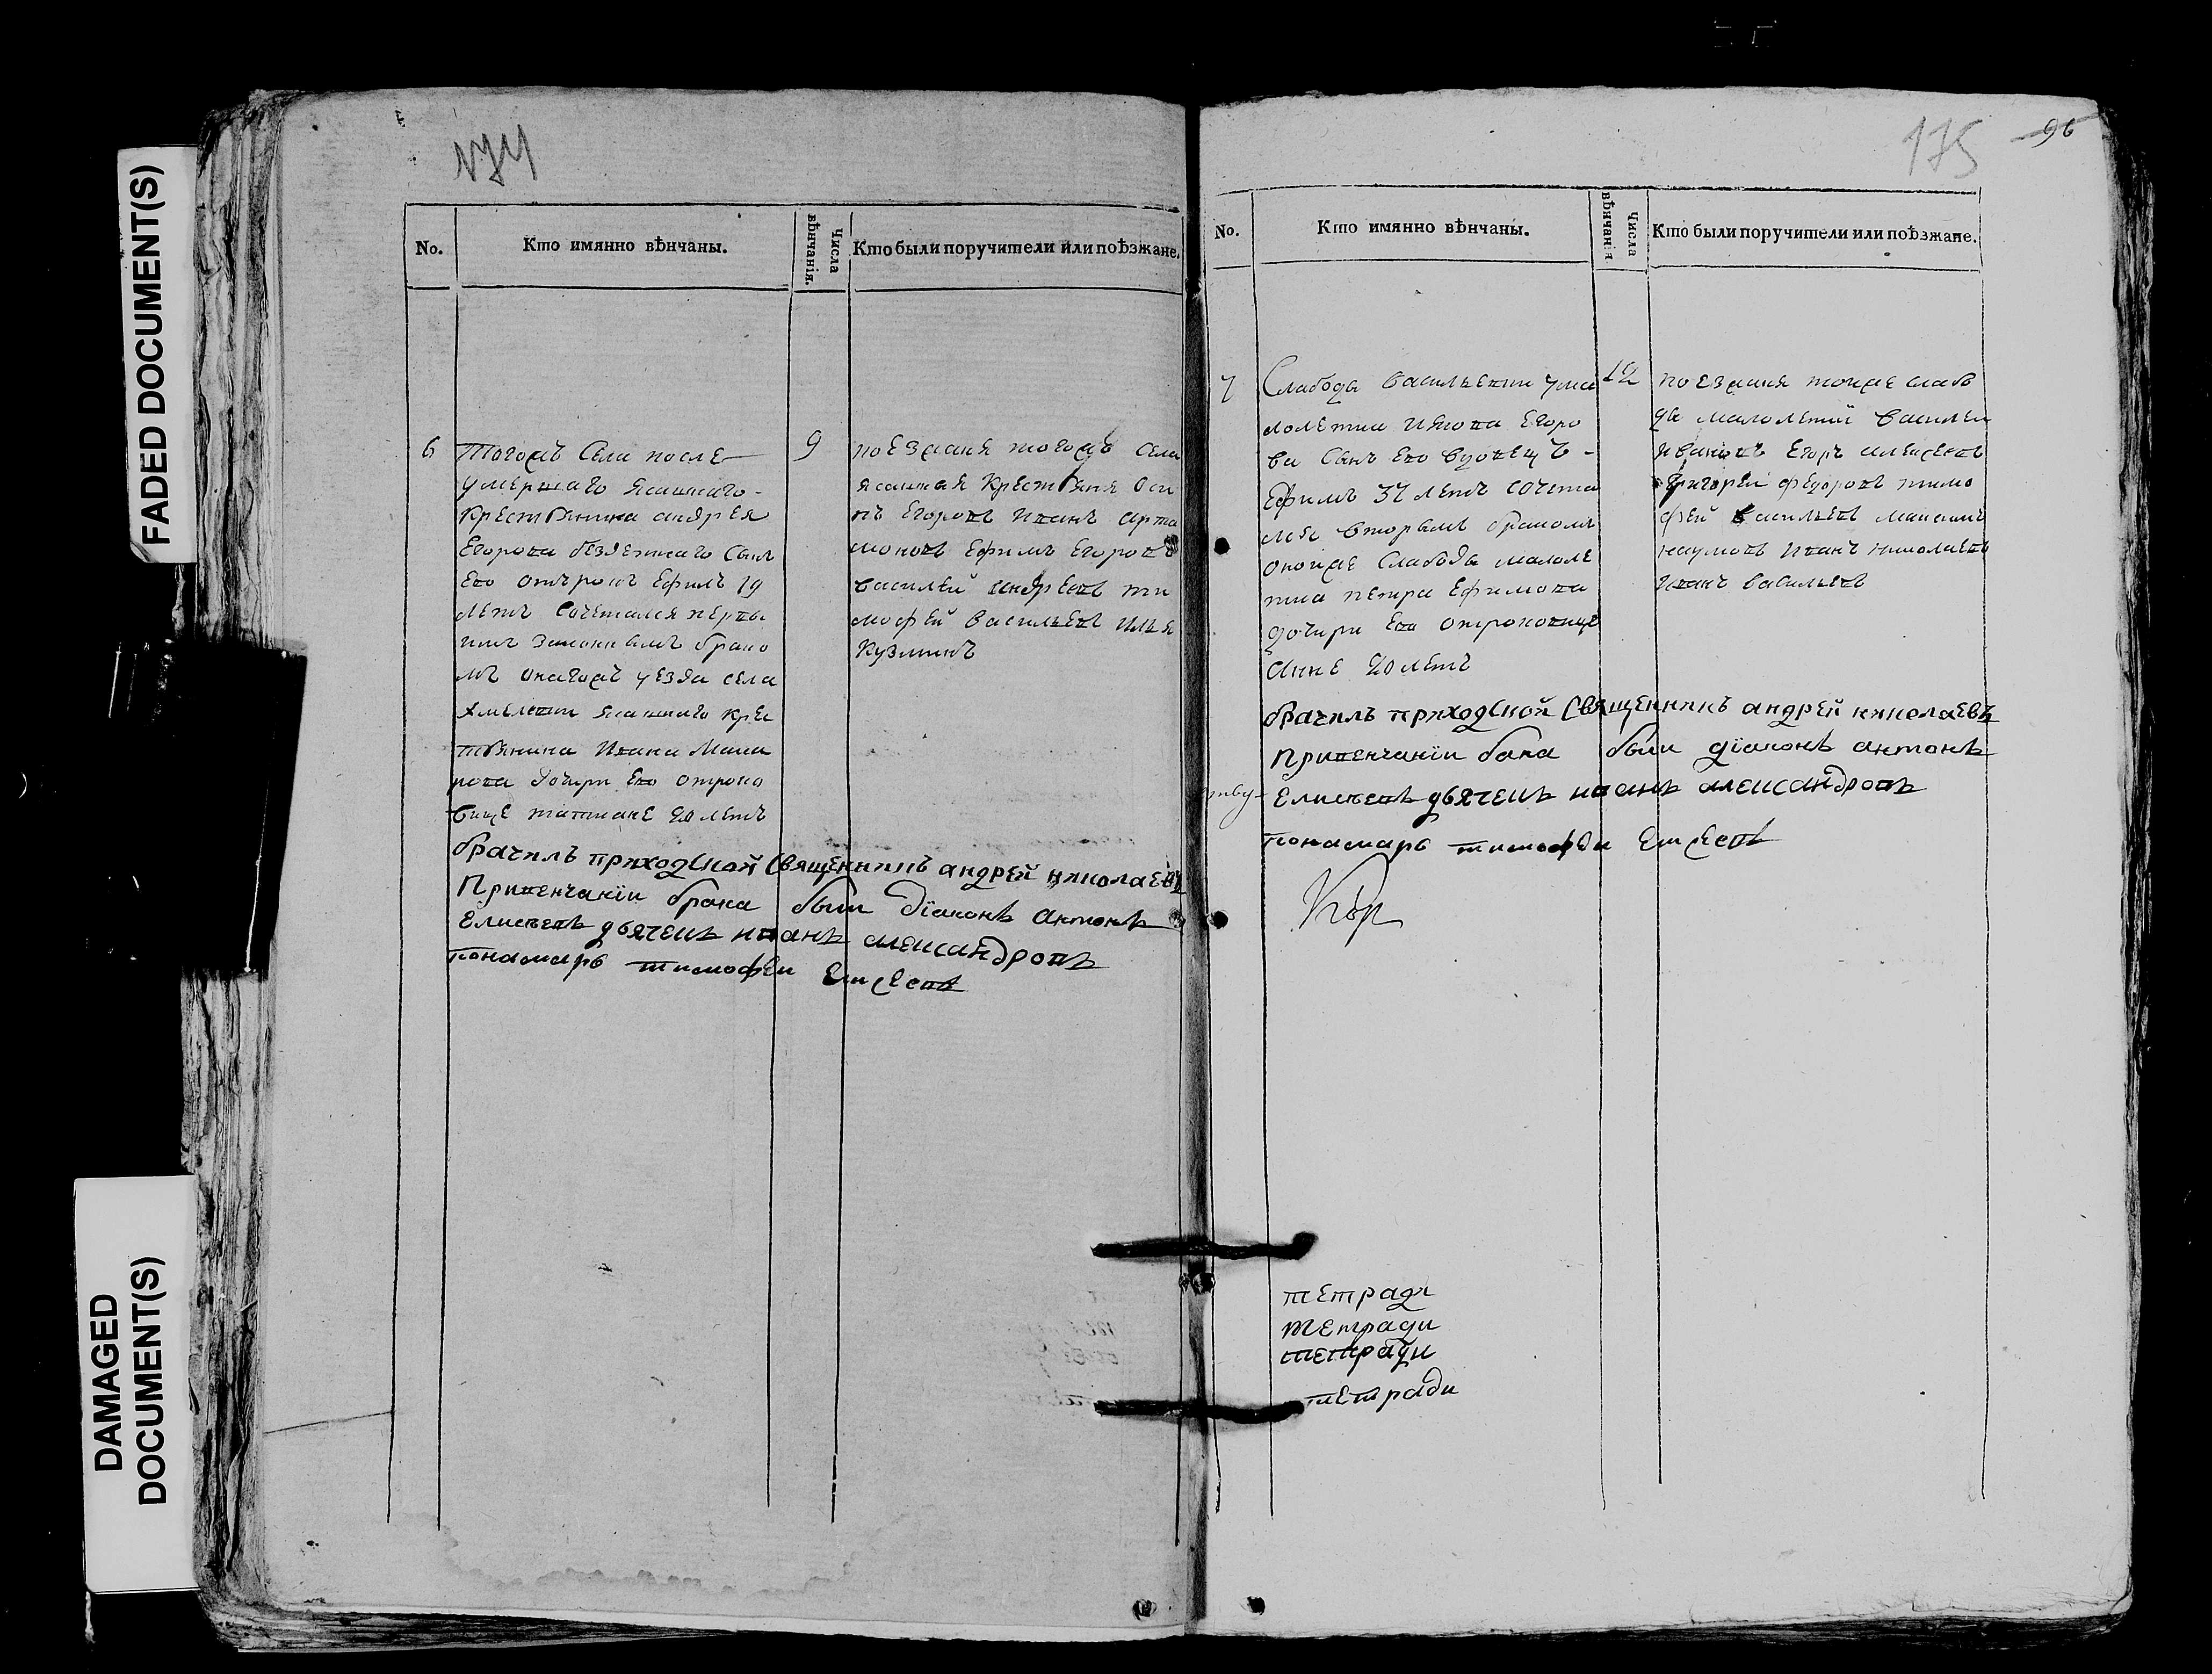 FADED DOCUMENT(S)
DAMAGED
DOCUMENT(S)
174
No.
Кто имянно вѣнчаны.
Числа
вѣнчанія.
Кто были поручители или поѣзжане.
6
Тогожъ Села после
умершаго ясашнаго
крестьянина андрея
Егорова бездетнаго Сынъ
Ево отърокъ Ефимъ 19
летъ Сочетался первы
имъ законнымъ брако
мъ онагожъ уезда села
хмелевки ясашнаго крес
тьянина Ивана Мака
рова дочири Ево отроко
вице татиане 20 летъ
9
поезжаня тогожъ села
ясашная Крестьяня Оси
пъ Егоровъ Иванъ Арта
моновъ Ефимъ Егоровъ
василей андреевъ ти
мофей васильевъ Илья
Кузминъ
брачилъ приходской Священникъ андрей николаевъ
Привенчаніи брака были діаконъ антонъ
Елисеевъ дьячекъ иванъ александровъ
понамарь тимофеи
175
96
No.
Кто имянно вѣнчаны.
Числа
вѣнчанія
Кто были поручители или поѣзжане.
7
Слабоды василевки
лолетка Егоро
ва Сынъ Ево вдовецъ
Ефимъ 37 летъ сочета
лся вторымъ бракомъ
онойже Слабоды малоле
тка петра Ефимова
дочири Ево отроковице
Анне 20 летъ
12
поезжаня тойже слабо
ды малолетки василеи
Ивановъ Егоръ алексеевъ
Григореи федоровъ тимо
фей васильевъ Максимъ
наумовъ Иванъ николаевъ
Иванъ васильевъ
брачилъ приходской Священникъ андрей николаевъ
Привенчаніи бака были діаконъ антонъ
Елисеевъ дьячекъ иванъ александровъ
понамарь тимофеи
тетради
тетради
тетради
тетради